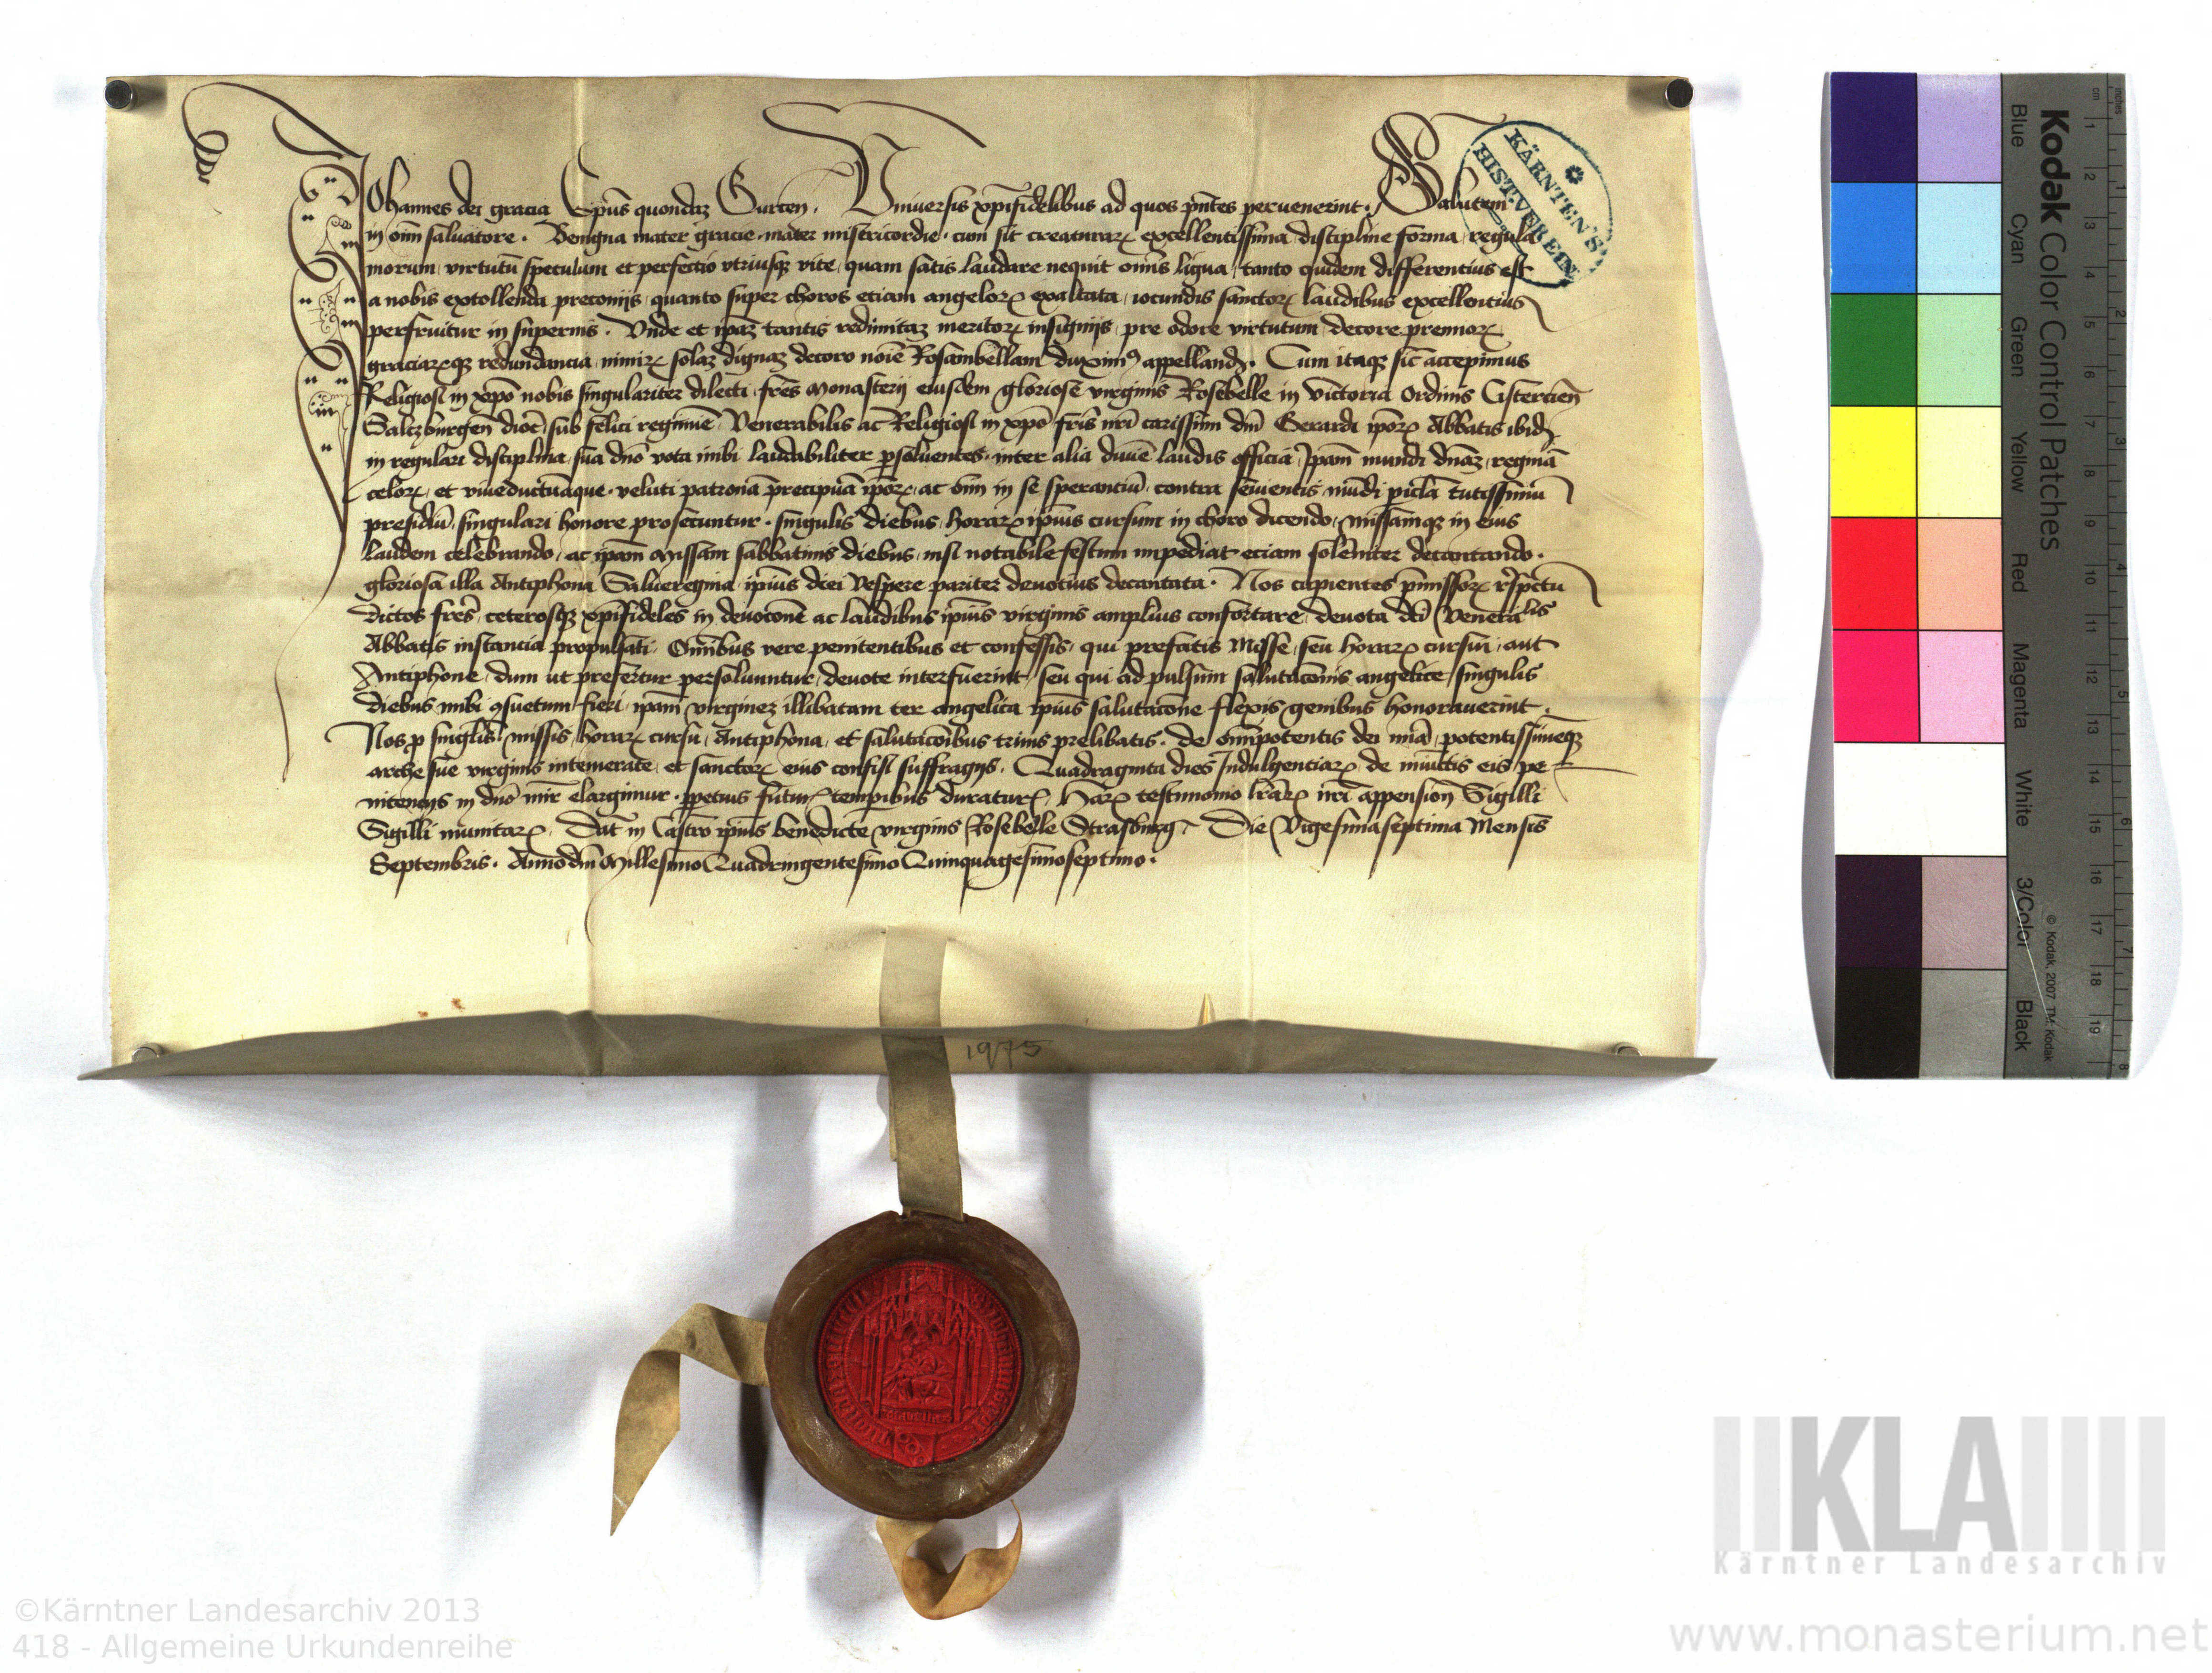 Johannes dei gracia Ep̄us quondaʒ Gurceñ. Vniuersis xp̄ifidelibus ad quos p̄ntes peruenerint. Salutem
in om̄i saluatore. Benigna mater gracie. mater misericordie. cum sit creaturaꝝ excellentissima discipline forma regula
morum, virtutū speculum et perfectio vtriusqʒ vite, quam satis laudare nequit om̄is ligua, tanto quidem differentius est
a nobis extollenda preconijs, quanto super choros eciam angeloꝝ exaltata, iocundis sanctoꝝ laudibus excellentius
perfruitur in supernis. Vnde et ip̄aʒ tantis redimitaʒ meritoꝝ insignijs, pre odore virtutum, decore premioꝝ
graciaꝝqʒ redundancia, nimiꝝ solaʒ dignaʒ decoro noīe Rosambellam duximꝰ appellandꝫ. Cum itaqʒ sic accepimus
Religiosi in xp̄o nobis singulariter dilecti, fr̄es Monasterij eiusdem gloriose virginis Rosebelle in victoria Ordinis Cistercieñ
Saltzburgeñ dioc̄, sub felici regimīe Venerabilis ac Religiosi in xp̄o fr̄is nr̄i carissimi dn̄i Gerardi ip̄oꝝ Abbatis ibidꝫ
in regulari disciplina, sua dn̄o vota inibi laudabiliter ꝑsoluentes. inter alia diuīe laudis officia, Ip̄am mundi dn̄aʒ, reginā
celoꝝ, et viueductuāque. veluti patronā precipuā ip̄oꝝ, ac om̄i in se sperantiū, contra seuientis mūdi pic̄la tutissimū
presidiū, singulari honore prosecuntur. singulis diebus, horaꝝ ip̄ius cursum in choro dicendo, missamqʒ in eius
laudem celebrando, ac ip̄am Missam sabbatinis diebus, nisi notabile festum impediat eciam solēniter decantando.
gloriosa illa Antiphona Salueregina, ip̄ius dc̄ei Vespere pariter deuotius decantata. Nos cupientes p̄missoꝝ
dictos fr̄es, ceterosqʒ xp̄ifideles in deuocōne ac laudibus ip̄ius virginis amplius confortare, deuota dc̄i Venerabilis
Abbatis instancia propulsati. Om̄ibus vere penitentibus et confessis, qui prefatis Misse, seu horaꝝ cursui, aut
Antiphone, dum ut prefertur persoluuntur, deuote interfuerint, seu qui ad pulsum salutacōnis angelice, singulis
diebus inibi ꝯsuetum fieri, ip̄am virgineʒ illibatam ter angelica ip̄ius salutacōne flexis genibus honorauerint.
Nos ꝓ singlis. missis, horaꝝ cursu, Antiphona, et salutacōibus trinis prelibatis. de om̄ipotentis dei mīa, potentissimeqʒ
arche sue virginis intemerate, et sanctoꝝ eius confisi suffragijs. Quadraginta dies Indulgentiaꝝ, de iniūctis eis pe
nitencijs in dn̄o mīr elargimur. ꝑpetuis futuꝝ tempibus duraturꝫ. Haꝝ testimonio lr̄aꝝ nr̄i appensioñ Sigilli
Sigilli munitaꝝ. Dat̄ in Castro ip̄ius benedicte virginis Rosebelle Strasburg. Die Vigesimaseptima Mensis
Septembris. Anno dn̄i Millesimo Quadringentesimo Quinquagesimoseptimo.
KÄRNTEN'S
HIST. VEREIN
1975
Kodak Color Control Patches
Blue Cyan Green Yellow Red Magenta White 3/Color Black
© Kodak, 2007 TM: Kodak
cm 1 2 3 4 5 6 7 8 9 10 11 12 13 14 15 16 17 18 19
inches 1 2 3 4 5 6 7 8
KLA
Kärntner Landesarchiv
©Kärntner Landesarchiv 2013
418 - Allgemeine Urkundenreihe
www.monasterium.net